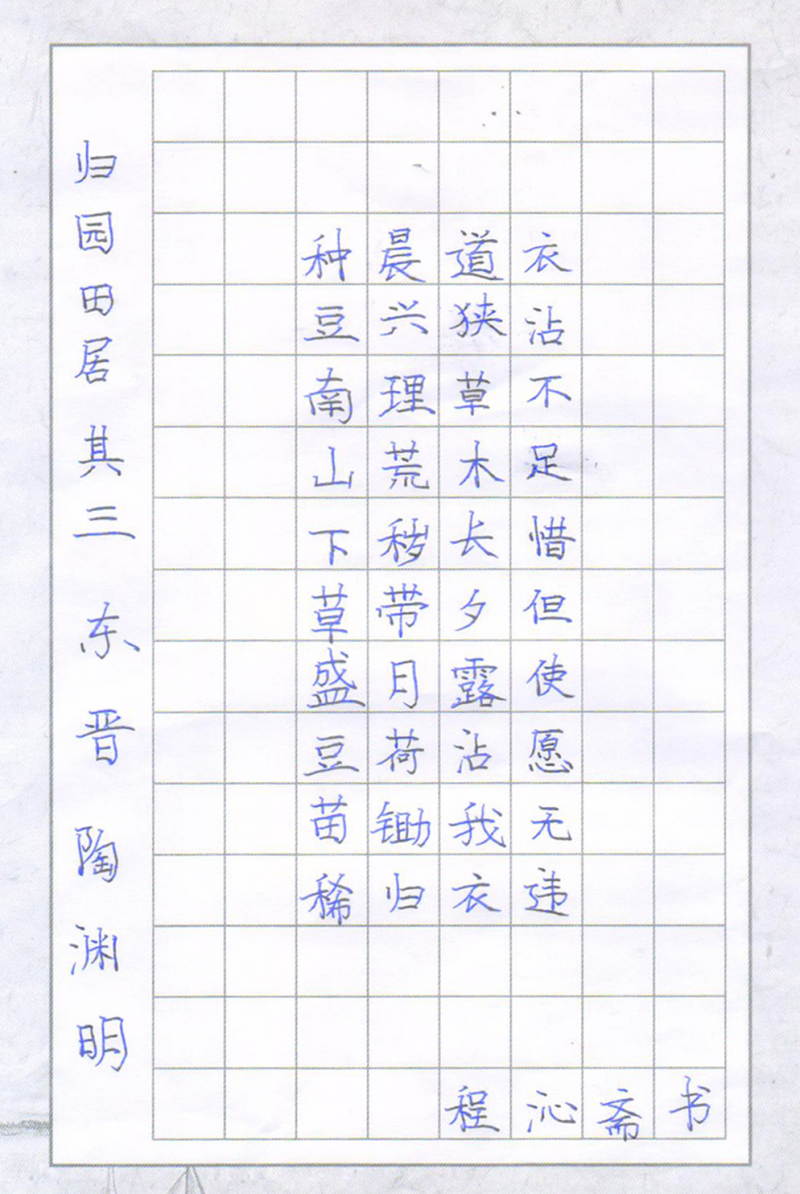 归园田居 其三 东晋 陶渊明
种豆南山下草盛豆苗稀
晨兴理荒秽带日荷锄归
道狭草木长夕露沾我衣
衣沾不足惜但使愿无违
程沁斋书